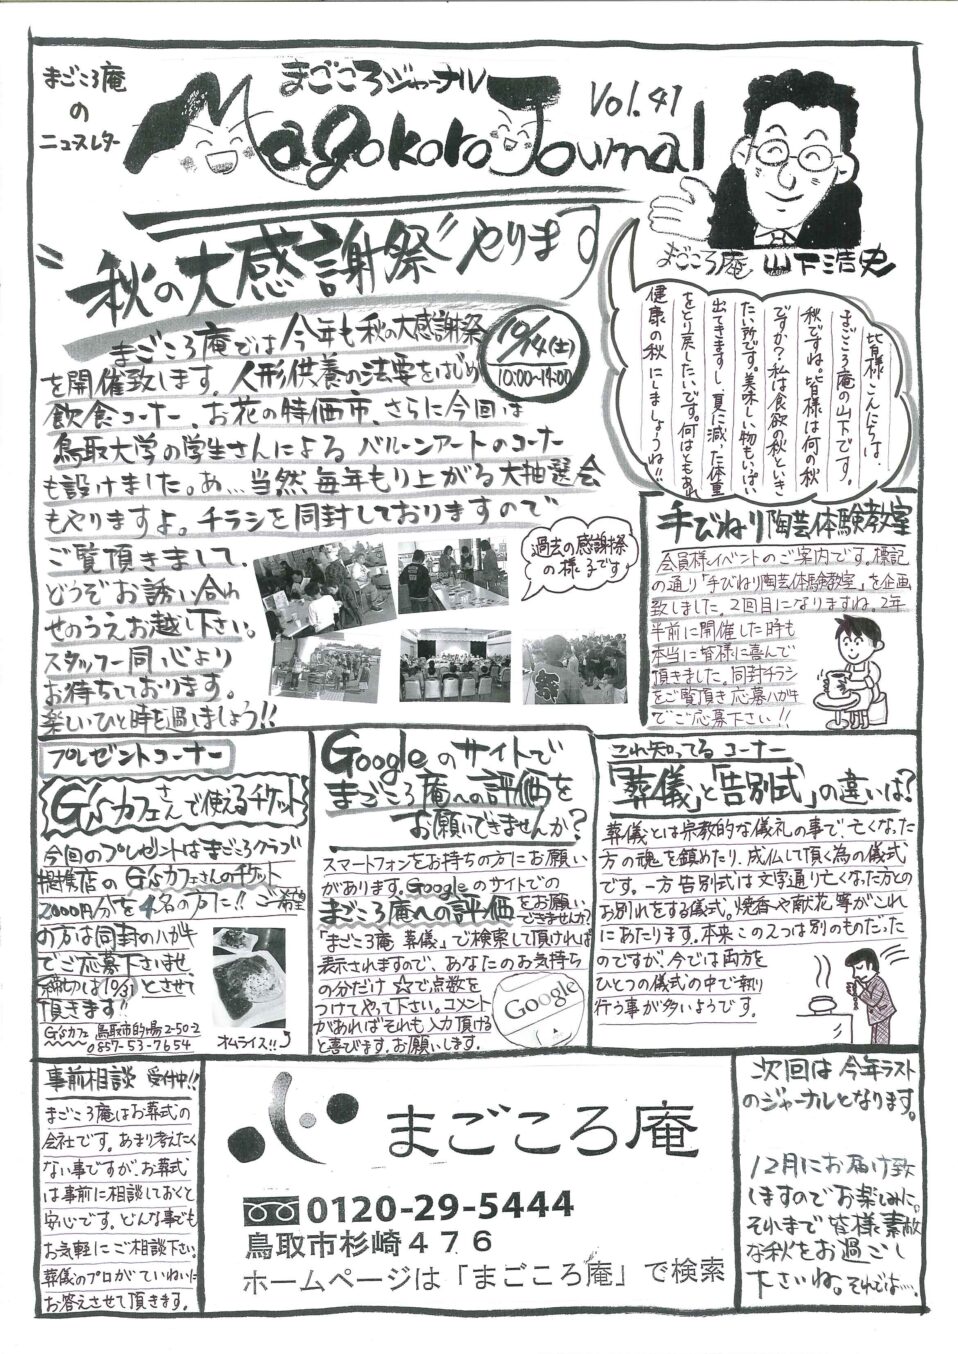 まごころ庵
の
ニュースレター
まごころジャーナル
Magokoro Journal
Vol.41
まごころ庵 山下浩史
"秋の大感謝祭"やります
10/14(土)
10:00~14:00
まごころ庵では今年も秋の大感謝祭
を開催致します。人形供養の法要をはじめ
飲食コーナー、お花の特価市、さらに今回は
鳥取大学の学生さんによるバルーンアートのコーナー
も設けました。あ…当然、毎年もり上がる大抽選会
もやりますよ。チラシを同封しておりますので
ご覧頂きまして、
どうぞお誘い合わ
せのうえお越し下さい。
スタッフ一同心より
お待ちしております。
楽しいひと時を過しましょう!!
過去の感謝祭
の様子です
皆様こんにちは、
まごころ庵の山下です。
秋ですね。皆様は何の秋
ですか?私は食欲の秋といき
たい所です。美味しい物もいっぱい
出てきますし、夏に減った体重
をとり戻したいです。何はともあれ
健康の秋にしましょうね!!
手びねり陶芸体験教室
会員様イベントのご案内です。標記
の通り「手びねり陶芸体験教室」を企画
致しました。2回目になりますね。2年
半前に開催した時も
本当に皆様に喜んで
頂きました。同封チラシ
をご覧頂き応募ハガキ
でご応募下さい!!
プレゼントコーナー
G'sカフェさんで使えるチケット
今回のプレゼントはまごころクラブ
提携店のG'sカフェさんのチケット
2000円分を4名の方に!!ご希望
の方は同封のハガキ
でご応募下さいませ
締切は10/31とさせて
頂きます!!
G'sカフェ 鳥取市的場2-50-2
0857-53-7654
オムライス!!
Googleのサイトで
まごころ庵への評価を
お願いできませんか?
スマートフォンをお持ちの方にお願い
があります。Googleのサイトでの
まごころ庵への評価をお願い
できませんか?
「まごころ庵 葬儀」で検索して頂ければ
表示されますので、あなたのお気持ち
の分だけ☆で点数を
つけてやって下さい。コメント
があればそれも入力頂ける
と喜びます。お願いします。
Google
これ知ってるコーナー
「葬儀」と「告別式」の違いは?
葬儀とは宗教的な儀礼の事で、亡くなった
方の魂を鎮めたり、成仏して頂く為の儀式
です。一方告別式は文字通り亡くなった方との
お別れをする儀式。焼香や献花等がこれ
にあたります。本来この2つは別のものだった
のですが、今では両方を
ひとつの儀式の中で執り
行う事が多いようです。
事前相談 受付中!!
まごころ庵はお葬式の
会社です。あまり考えたく
ない事ですが、お葬式
は事前に相談しておくと
安心です。どんな事でも
お気軽にご相談下さい。
葬儀のプロがていねいに
お答えさせて頂きます。
まごころ庵
0120-29-5444
鳥取市杉崎476
ホームページは「まごころ庵」で検索
次回は今年ラスト
のジャーナルとなります。
12月にお届け致
しますのでお楽しみに。
それまで皆様素敵
な秋をお過ごし
下さいね。それでは….